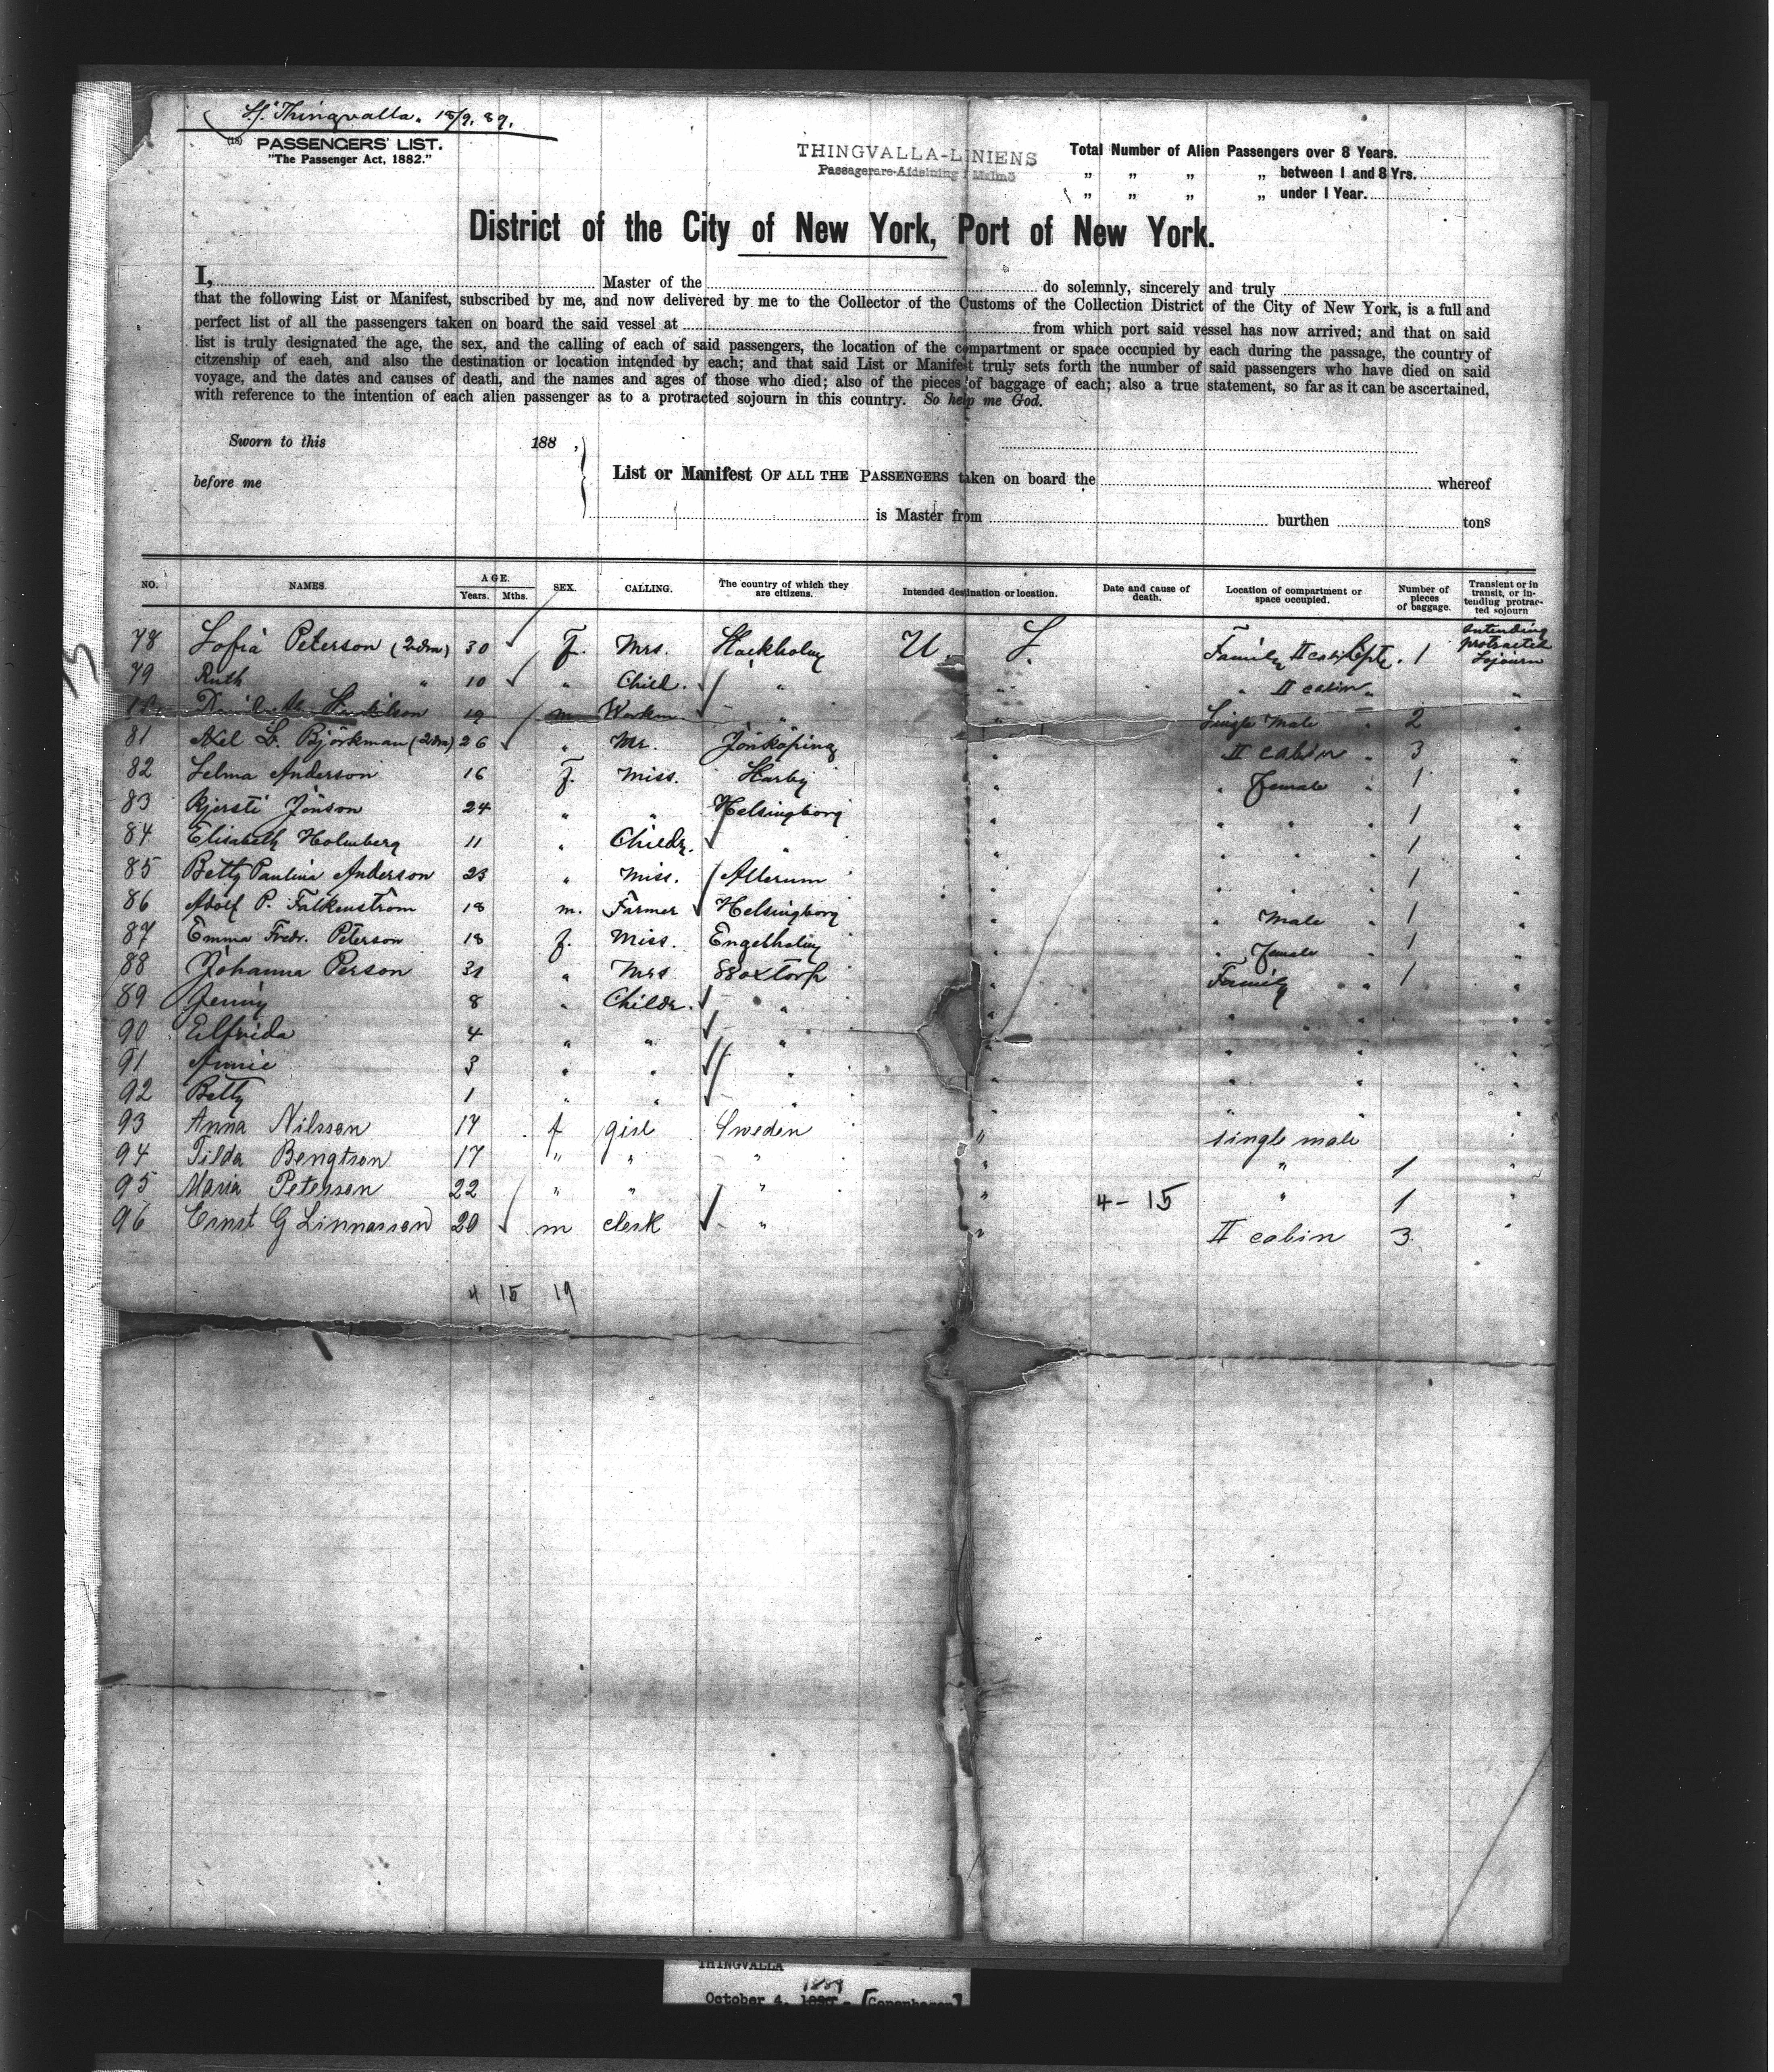 S/S Thingvalla. 18/9. 89.
(18) PASSENGERS' LIST.
"The Passenger Act, 1882."
THINGVALLA-LINIENS
Passagerare-Afdelning i Malmö
Total Number of Alien Passengers over 8 Years.
„ „ „ „ between 1 and 8 Yrs.
„ „ „ „ under 1 Year.
District of the City of New York, Port of New York.
I, Master of the do solemnly, sincerely and truly
that the following List or Manifest, subscribed by me, and now delivered by me to the Collector of the Customs of the Collection District of the City of New York, is a full and
perfect list of all the passengers taken on board the said vessel at from which port said vessel has now arrived; and that on said
list is truly designated the age, the sex, and the calling of each of said passengers, the location of the compartment or space occupied by each during the passage, the country of
citzenship of eaeh, and also the destination or location intended by each; and that said List or Manifest truly sets forth the number of said passengers who have died on said
voyage, and the dates and causes of death, and the names and ages of those who died; also of the pieces of baggage of each; also a true statement, so far as it can be ascertained,
with reference to the intention of each alien passenger as to a protracted sojourn in this country. So help me God.
Sworn to this 188 ,
before me
List or Manifest OF ALL THE PASSENGERS taken on board the whereof
is Master from burthen tons
NO. NAMES. AGE. Years. Mths. SEX. CALLING. The country of which they are citizens. Intended destination or location. Date and cause of death. Location of compartment or space occupied. Number of pieces of baggage. Transient or in transit, or intending protracted sojourn
78 Sofia Peterson (2dra) 30 F. Mrs. U. S. Family II cabin 1 intending protracted Sojourn
79 Ruth " 10 " Child. " " " II cabin " "
19 m Workm " " Single Male " 2
81 Axel L. Björkman (2dra) 26 " Mr. Jönköping " II cabin " 3 "
82 Selma Anderson 16 F. Miss. Harby " " Female " 1 "
83 Kjersti Jönson 24 " " Helsingborg " " " " 1 "
84 Elisabeth Holmberg 11 " Childr. " " " " " 1 "
85 Betty Paulina Anderson 23 " Miss. Allerum " " " " 1 "
86 Adolf P. Falkenstrom 18 m. Farmer Helsingborg " " Male " 1 "
87 Emma Fredr. Peterson 18 f. Miss. Engelholm " " Female 1 "
88 Johanna Person 31 " Mrs Boxtorp " Family " " 1 "
89 Jenny 8 " Childr. " " " " "
90 Elfrida 4 " " " " " " "
91 Annie 3 " " " " " " "
92 Betty 1 " " " " " " "
93 Anna Nilsson 17 f girl Sweden " single male "
94 Tilda Bengtson 17 " " " " " 1 "
95 Maria Peterson 22 " " " " 4 - 15 " 1 "
96 Ernst G Linnarsson 20 m clerk " " II cabin 3 "
4 15 19
THINGVALLA
1889
October 4, - [Copenhagen]